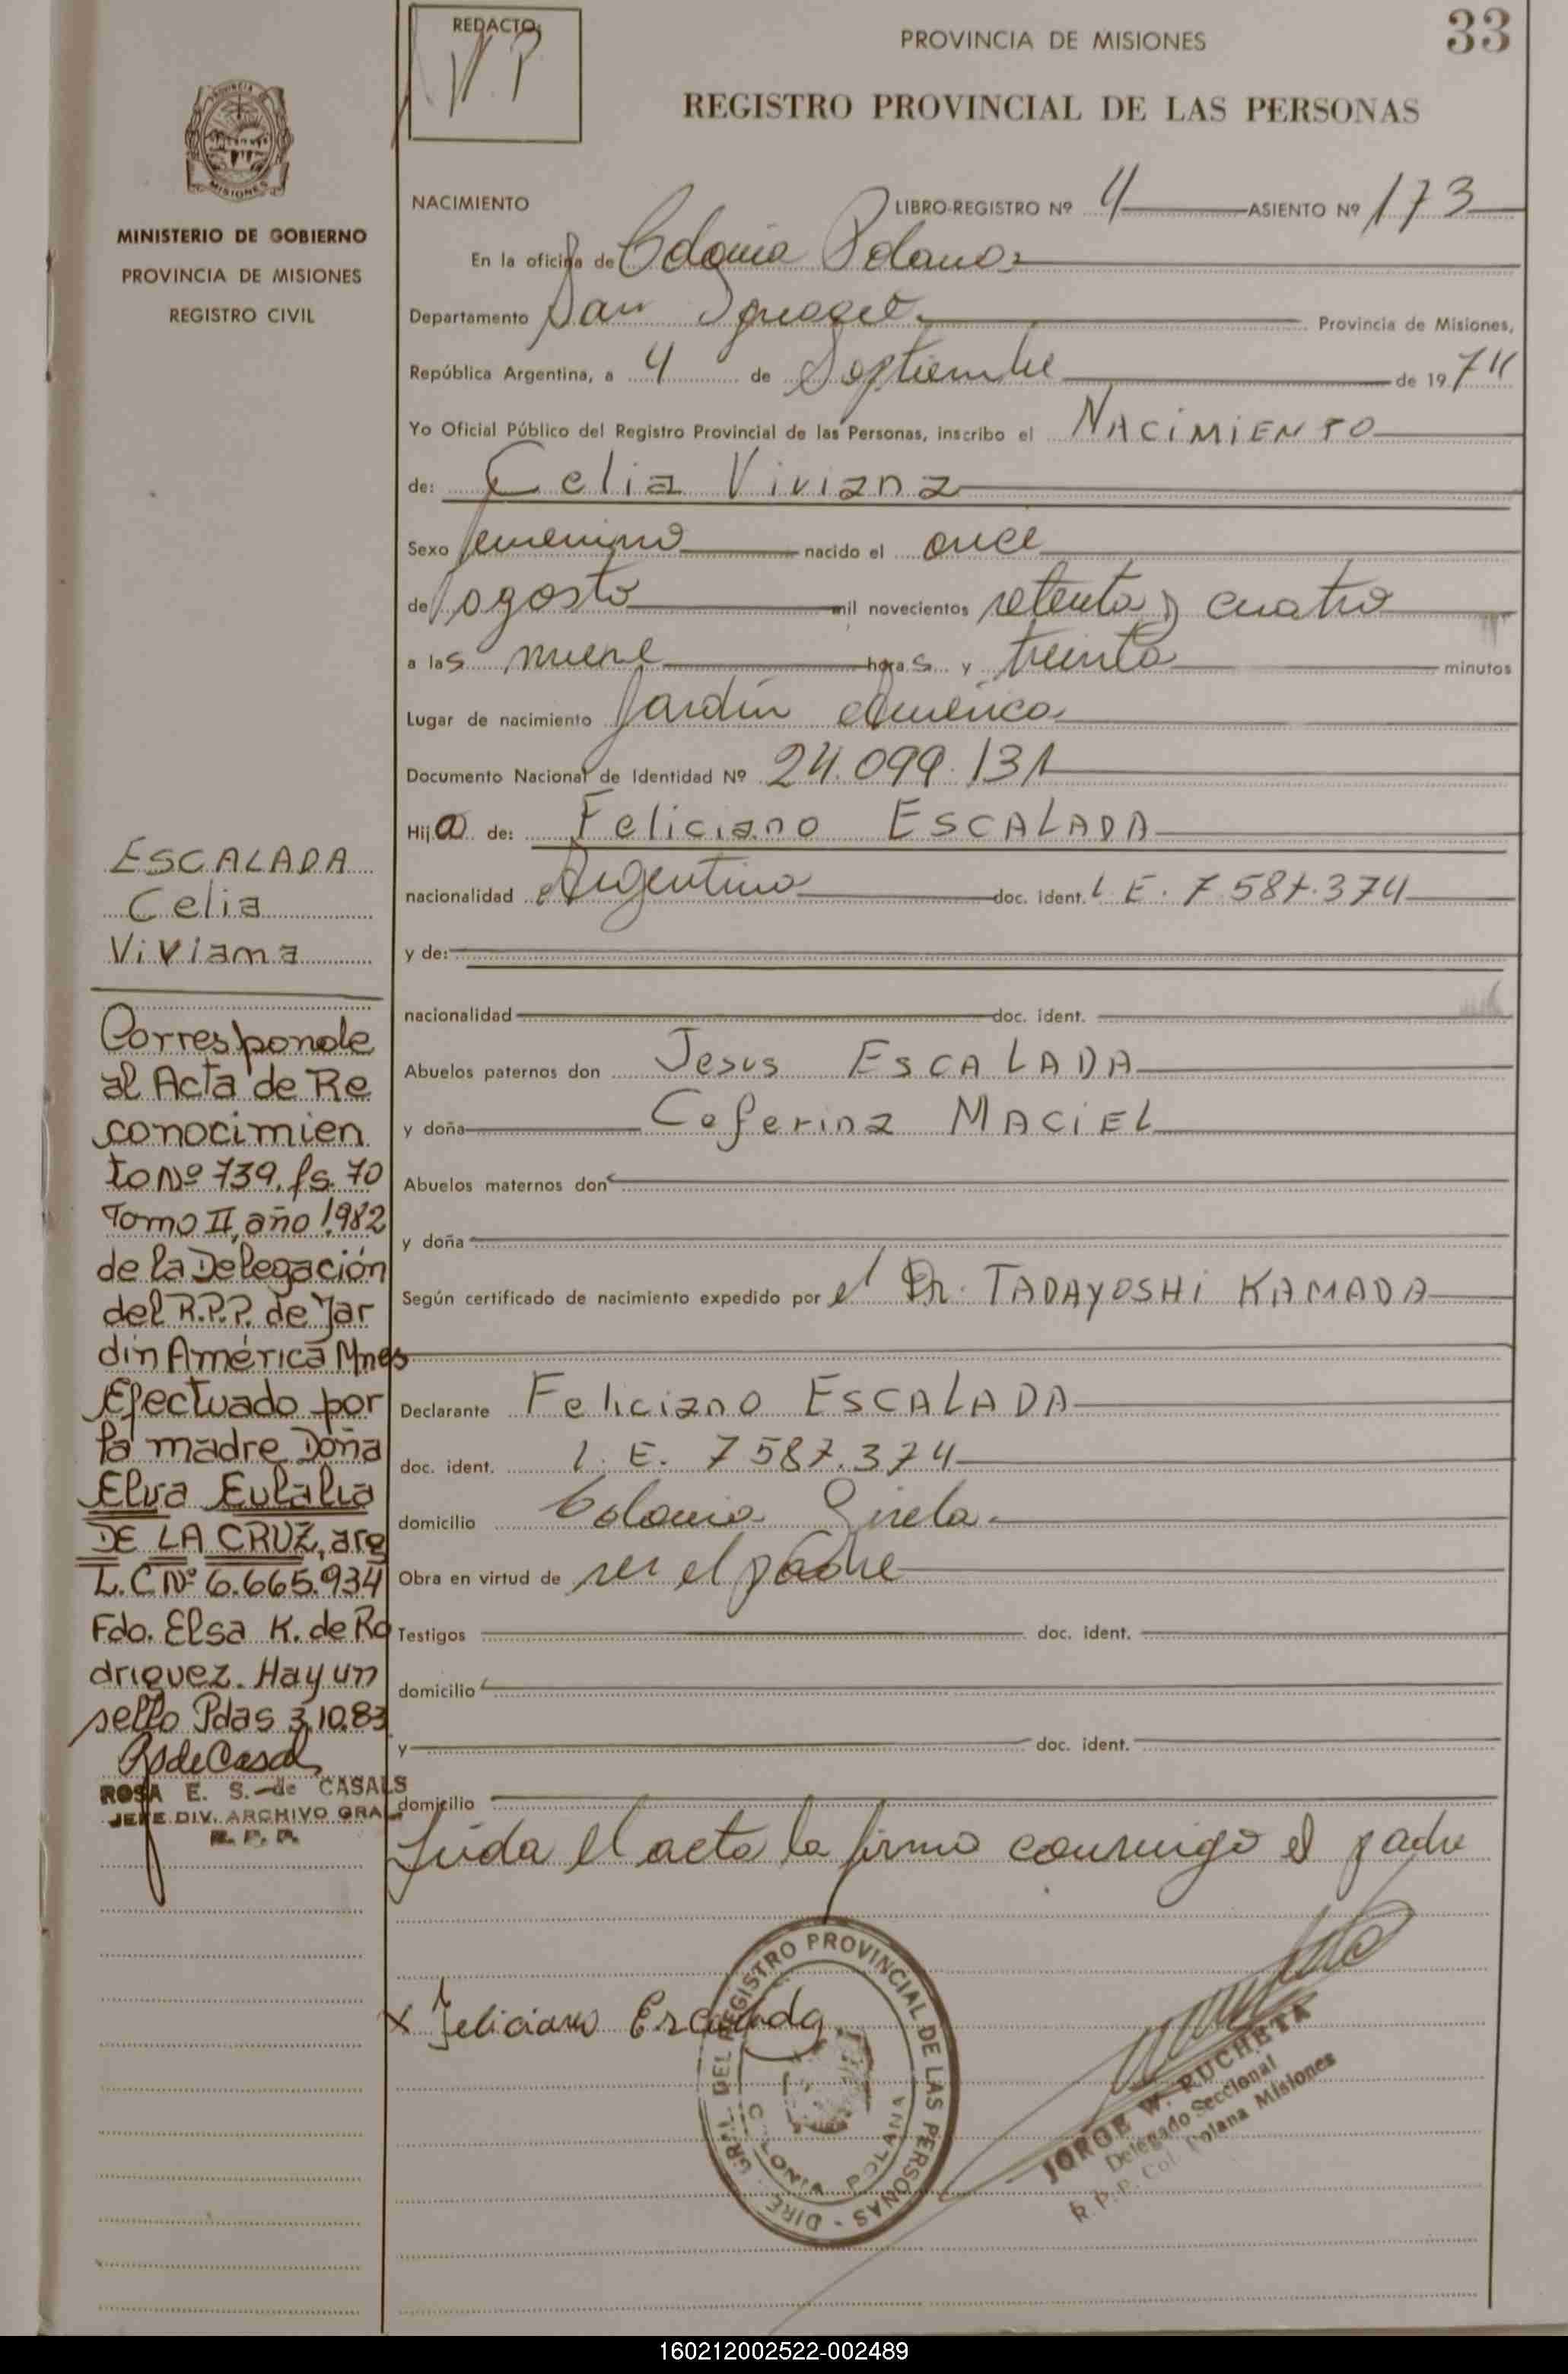 REDACTO:
PROVINCIA DE MISIONES
33
REGISTRO PROVINCIAL DE LAS PERSONAS
PROVINCIA DE
MISIONES
MINISTERIO DE GOBIERNO
PROVINCIA DE MISIONES
REGISTRO CIVIL
NACIMIENTO LIBRO-REGISTRO Nº 4 ASIENTO Nº 173
En la oficina de Colonia Polana
Departamento San Ignacio Provincia de Misiones,
República Argentina, a 4 de Septiembre de 19 74
Yo Oficial Público del Registro Provincial de las Personas, inscribo el NACIMIENTO
de: Celia Viviana
Sexo femenino nacido el once
de agosto mil novecientos setenta y cuatro
a las nueve horas y treinta minutos
Lugar de nacimiento Jardín América
Documento Nacional de Identidad Nº 24.099.131
Hija de: Feliciano ESCALADA
nacionalidad Argentino doc. ident. L.E. 7.587.374
y de:
nacionalidad doc. ident.
Abuelos paternos don Jesus ESCALADA
y doña Ceferina MACIEL
Abuelos maternos don
y doña
Según certificado de nacimiento expedido por el Dr. TADAYOSHI KAMADA
Declarante Feliciano ESCALADA
doc. ident. L.E. 7587.374
domicilio Colonia Gisela
Obra en virtud de ser el padre
Testigos doc. ident.
domicilio
y doc. ident.
domicilio
Leida el acta la firma conmigo el padre
x Feliciano Escalada
DIRE. GRAL. DEL REGISTRO PROVINCIAL DE LAS PERSONAS
COLONIA POLANA
JORGE W. RUCHETA
Delegado Seccional
R. P. P. Col. Polana Misiones
ESCALADA
Celia
Viviana
Corresponde
al Acta de Re
conocimien
to Nº 739, fs. 70
Tomo II, año 1982
de la Delegación
del R.P.P. de Jar
dín América Mnes
Efectuado por
la madre Doña
Elva Eulalia
DE LA CRUZ, arg
L.C Nº 6.665.934
Fdo. Elsa K. de Ro
driguez. Hay un
sello Pdas 3.10.83
ROSA E. S. de CASALS
JEFE DIV. ARCHIVO GRAL
R. P. P.
160212002522-002489